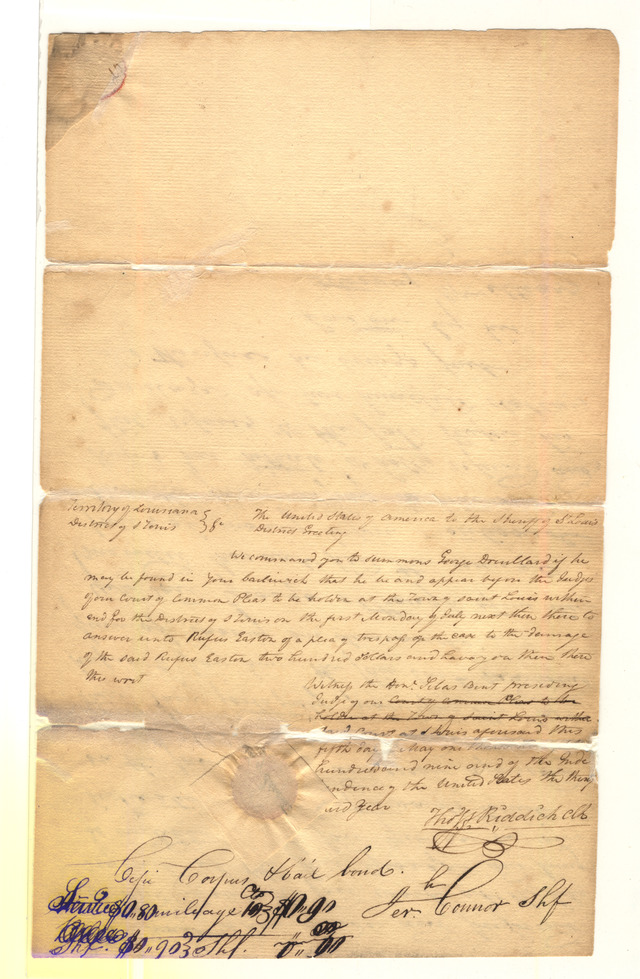 Territory of Louisiana
District of St Louis
The United States of America to the Sheriff of St Louis
District Greeting
We command you to summons George Drouillard if he
may be found in your bailiwick that he be and appear before the Judges
of our Court of Common Pleas to be holden at the Town of saint Louis within
and for the District of St Louis on the first Monday of July next then there to
answer unto Rufus Easton of a plea of trespass on the case to the damage
of the said Rufus Easton two hundred dollars and have you then there
this writ
Witness the Honl. Silas Bent presiding
Judge of our Court of Common Pleas to be
holden at the Town of Saint Louis within
said Court at St Louis aforesaid this
fifth day May one
hundred and nine and of the Inde
ndence of the United States the thirty
ird Year
Thos F Riddick Clk
Cepi Corpus & bail bond.
Jer. Connor Shf
Service $0,,80 mileage 10 $0,,90
Shf. $0,,90 Shf. 90